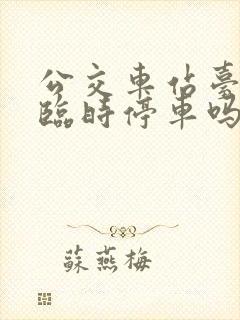 公交車佔臺
臨時停車嗎
蘇燕梅